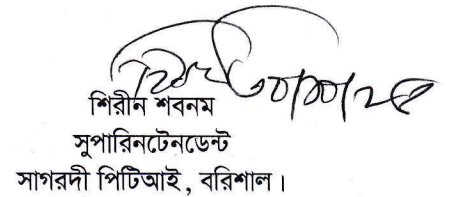 শিরীন শবনম
সুপারিনটেনডেন্ট
সাগরদী পিটিআই, বরিশাল।